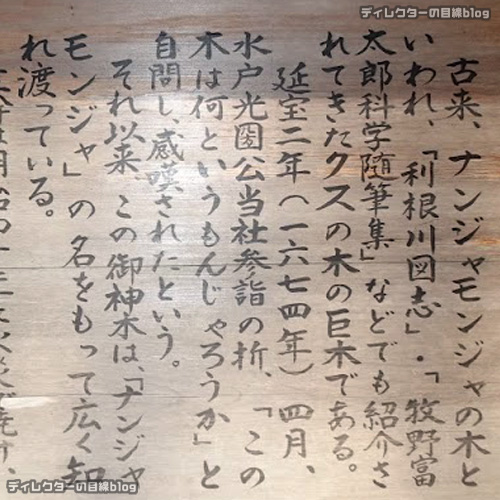 ディレクターの目線blog
古来、ナンジャモンジャの木と
いわれ、「利根川図志」・「牧野富
太郎科学随筆集」などでも紹介さ
れてきたクスの木の巨木である。
延宝二年(一六七四年)四月、
水戸光圀公当社参詣の折、「この
木は何というもんじゃろうか」と
自問し、感嘆されたという。
それ以来、この御神木は、「ナンジャ
モンジャ」の名をもって広く知
れ渡っている。
ディレクターの目線blog